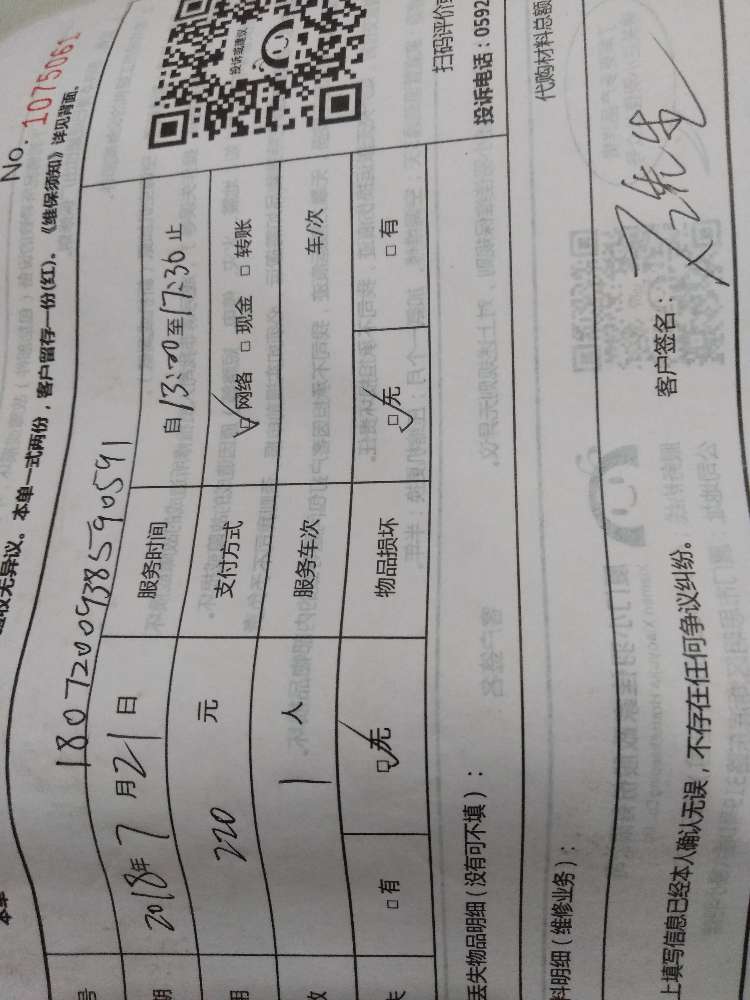 No. 1075061
验收无异议。本单一式两份，客户留存一份(红)。《维保须知》详见背面。
号 1807200938590591
期 2018年7月21日 服务时间 自13:00至17:30止
用 220元 支付方式 ☑网络 □现金 □转账
数 1人 服务车次 车/次
失 □有 ☑无 物品损坏 ☑无 □有
投诉或建议
扫码评价或
投诉电话：0592
丢失物品明细（没有可不填）：
料明细（维修业务）：
代购材料总额
上填写信息已经本人确认无误，不存在任何争议纠纷。
客户签名：
先生